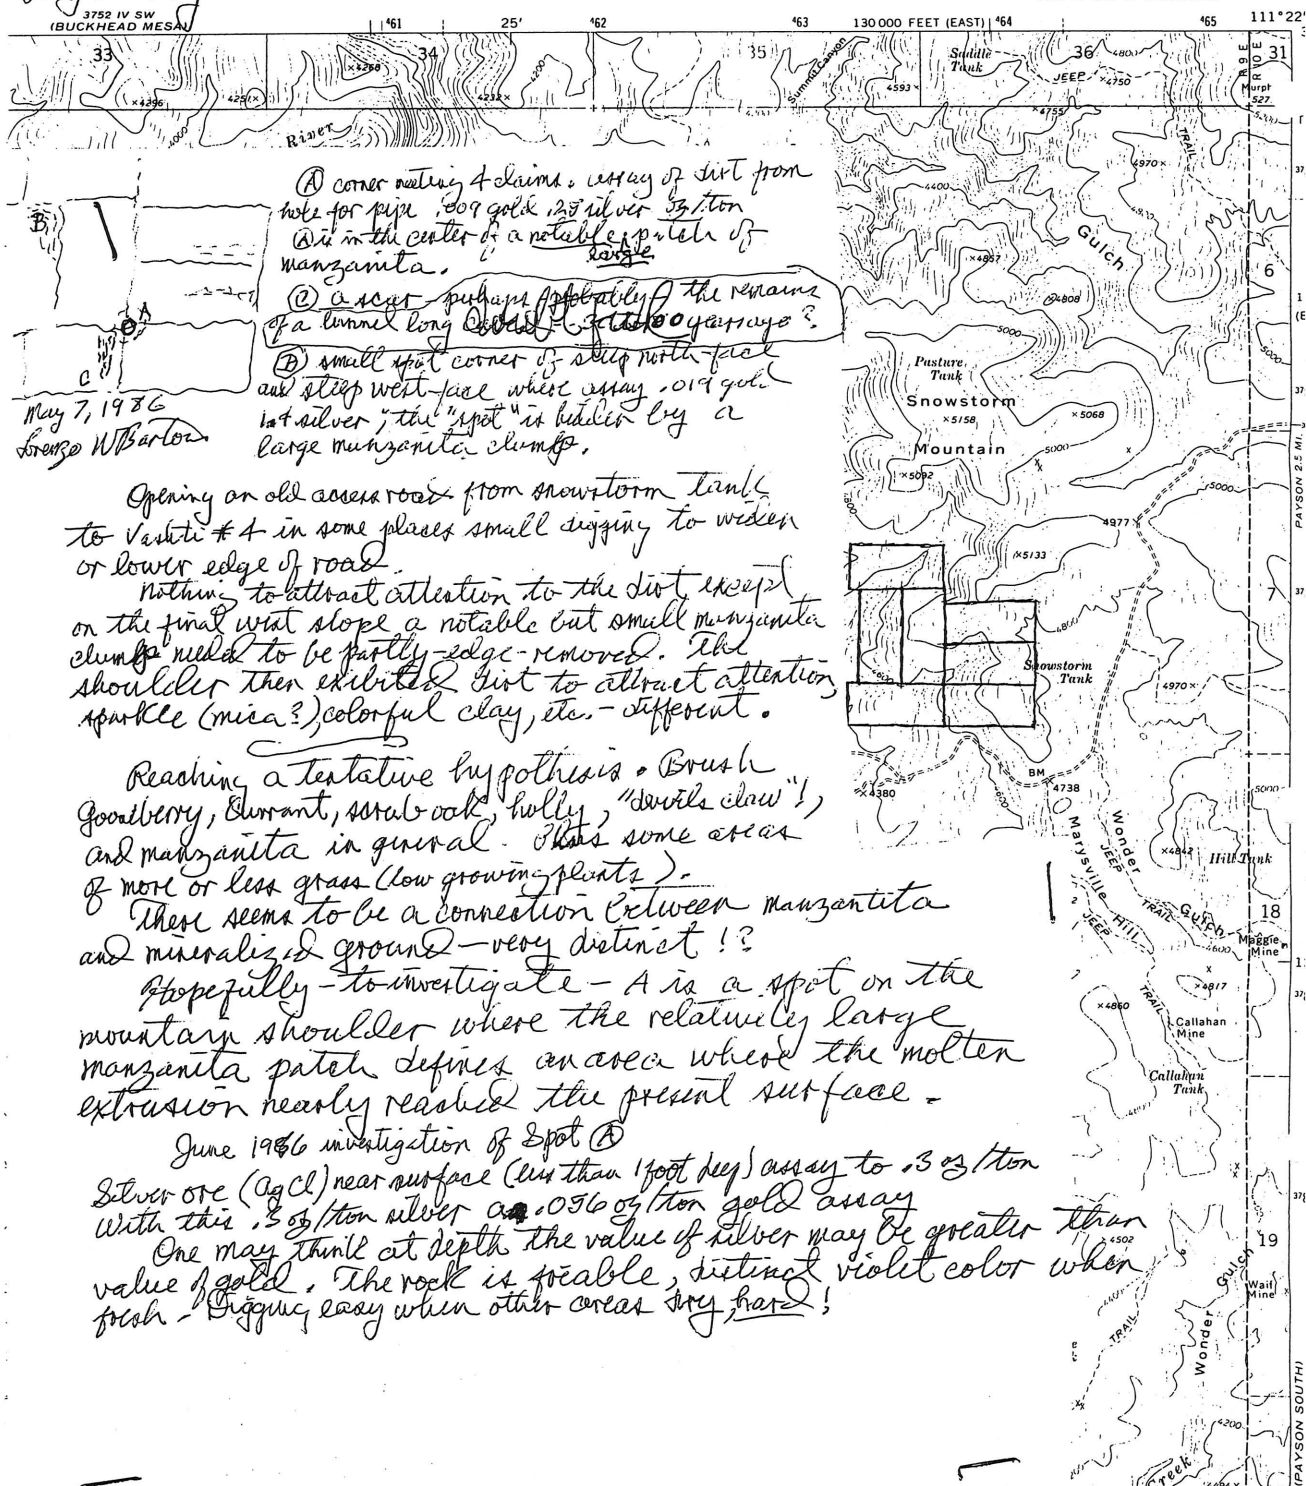 3752 IV SW
(BUCKHEAD MESA)
461
25'
462
463
130 000 FEET (EAST)
464
465
111°22'
33
34
35
36
31
×4296
4251×
×4268
4232×
4200
4000
River
Summit Canyon
4593×
Saddle
Tank
JEEP
4800
×4750
×4755
R 9 E
R 10 E
527
TRAIL
4970×
4400
Gulch
×4857
4808
6
5000
5000
Pasture
Tank
Snowstorm
×5158
×5068
Mountain
5000
×5092
5000
PAYSON 2.5 MI.
4977
×5133
7
Snowstorm
Tank
4970×
BM
×4738
×4380
5000
Marysville Hill
Wonder
JEEP
×4842
Hill Tank
TRAIL
Gulch
18
JEEP
4600
Maggie
Mine
×4817
×4860
TRAIL
Callahan
Mine
Callahan
Tank
4502
19
Gulch
Waif
Mine
TRAIL
Wonder
4200
Creek
(PAYSON SOUTH)
B
A
C
May 7, 1986
Lorenzo W Barton
Ⓐ corner meeting 4 claims. assay of dirt from
hole for pipe .009 gold .25 silver oz/ton
Ⓐ is in the center of a notable large patch of
manzanita.
Ⓒ a scar - perhaps (probably) the remains
of a tunnel long years ago?
Ⓑ small spot corner of steep north-face
and steep west-face where assay .019 gold
silver; the "spot" is hidden by a
large manzanita clump.
Opening an old access road from snowstorm tank
to Vashti #4 in some places small digging to widen
or lower edge of road.
Nothing to attract attention to the dirt except
on the final west slope a notable but small manzanita
clump needed to be partly-edge-removed. The
shoulder then exibited dirt to attract attention,
sparkle (mica?), colorful clay, etc. - different.
Reaching a tentative hypothesis. Brush
Gooseberry, Currant, scrub oak, holly, "devils claw"!,
and manzanita in general. Plus some areas
of more or less grass (low growing plants).
There seems to be a connection between manzantita
and mineralized ground - very distinct!?
Hopefully - to investigate - A is a spot on the
mountain shoulder where the relatively large
manzanita patch defines an area where the molten
extrusion nearly reached the present surface.
June 1986 investigation of Spot Ⓐ
Silver ore (AgCl) near surface (less than 1 foot deep) assay to .3 oz/ton
with this .3 oz/ton silver a .056 oz/ton gold assay
One may think at depth the value of silver may be greater than
value of gold. The rock is friable, distinct violet color when
fresh - Digging easy when other areas dry, hard!